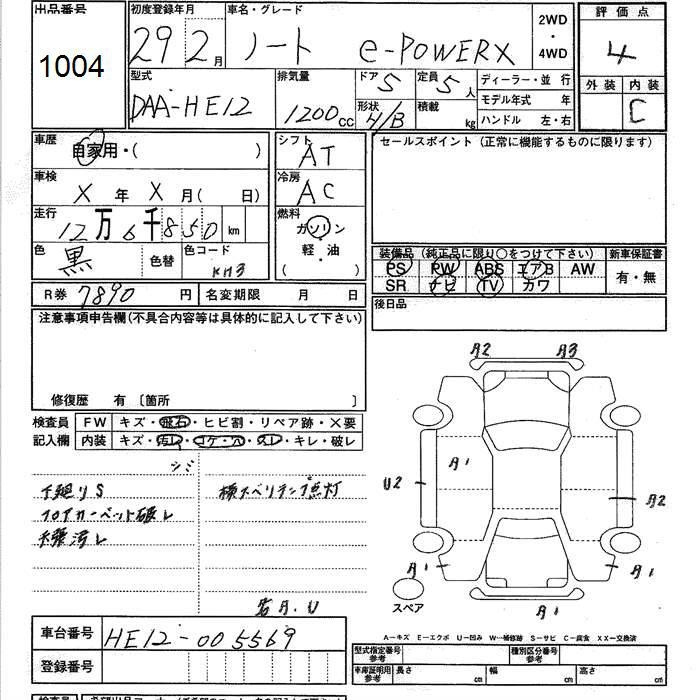 出品番号
1004
初度登録年月
29 2月
車名・グレード
ノート e-POWERX
2WD
・
4WD
評価点
4
外装 内装
C
型式
DAA-HE12
排気量
1200cc
ドア 5
形状 H/B
定員 5人
積載 kg
ディーラー・並行
モデル年式 年
ハンドル 左・右
車歴
自家用・( )
車検
X 年 X 月( 日)
走行
12万6千850 km
色
黒 色替
色コード
KH3
シフト
AT
冷房
AC
燃料
ガソリン
・
軽・油
( )
セールスポイント(正常に機能するものに限ります)
装備品(純正品に限り○をつけて下さい)
PS PW ABS エアB AW
SR ナビ TV カワ
新車保証書
有・無
R券 7890 円 名変期限 月 日
後日品
注意事項申告欄(不具合内容等は具体的に記入して下さい)
修復歴 有 〔箇所 〕
検査員
記入欄
FW キズ・飛石・ヒビ割・リペア跡・×要
内装 キズ・汚レ・コゲ・穴・スレ・キレ・破レ
シミ
下廻りS
フロアカーペット破レ
天張汚レ
横スベリテップ点灯
A2 A3
A1
U2
A2
A1 A1
A1
スペア
車台番号 HE12-005569
登録番号
A…キズ E…エクボ U…凹み W…補修跡 S…サビ C…腐食 XX…交換済
型式指定番号
参考
種別区分番号
参考
車庫証明用
参考
長さ cm 幅 cm 高さ cm